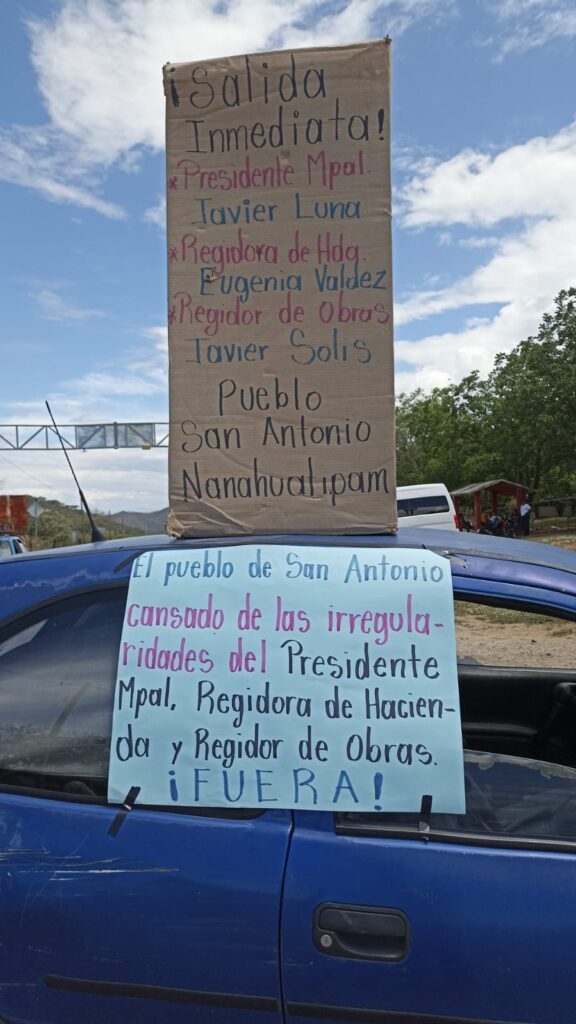 ¡Salida
Inmediata!
*Presidente Mpal.
Javier Luna
*Regidora de Hda.
Eugenia Valdez
*Regidor de Obras
Javier Solis
Pueblo
San Antonio
Nanahuatipam
El pueblo de San Antonio
cansado de las irregula-
ridades del Presidente
Mpal, Regidora de Hacien-
da y Regidor de Obras.
¡FUERA!